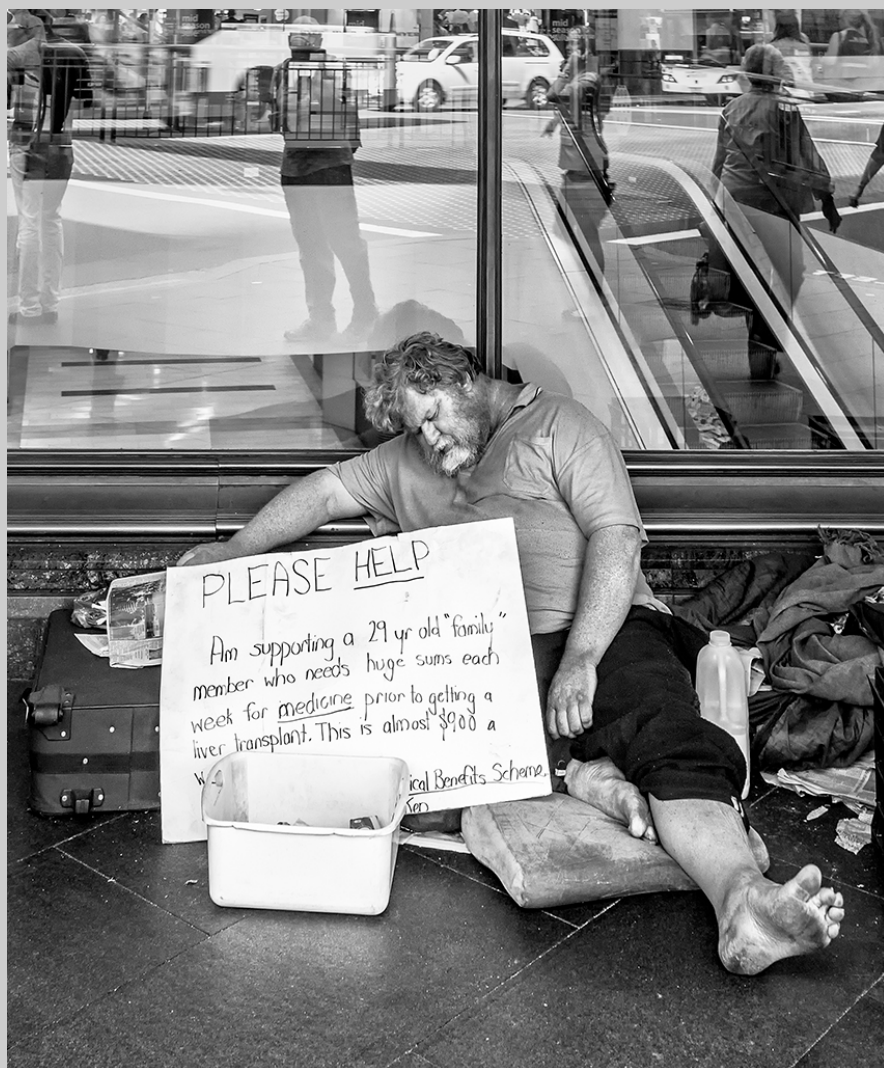 mid
season
mid
season
PLEASE HELP
Am supporting a 29 yr old "family"
member who needs huge sums each
week for medicine prior to getting a
liver transplant. This is almost $900 a
ical Benefits Scheme.
Ken